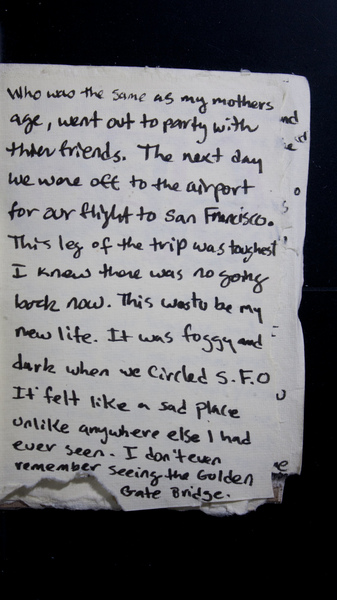 Who was the same as my mothers
age, went out to party with
thier friends. The next day
we were off to the airport
for our flight to San Francisco.
This leg of the trip was toughest
I knew there was no going
back now. This was to be my
new life. It was foggy and
dark when we circled S.F.O
It felt like a sad place
unlike anywhere else I had
ever seen. I don't even
remember seeing the Golden
Gate Bridge.